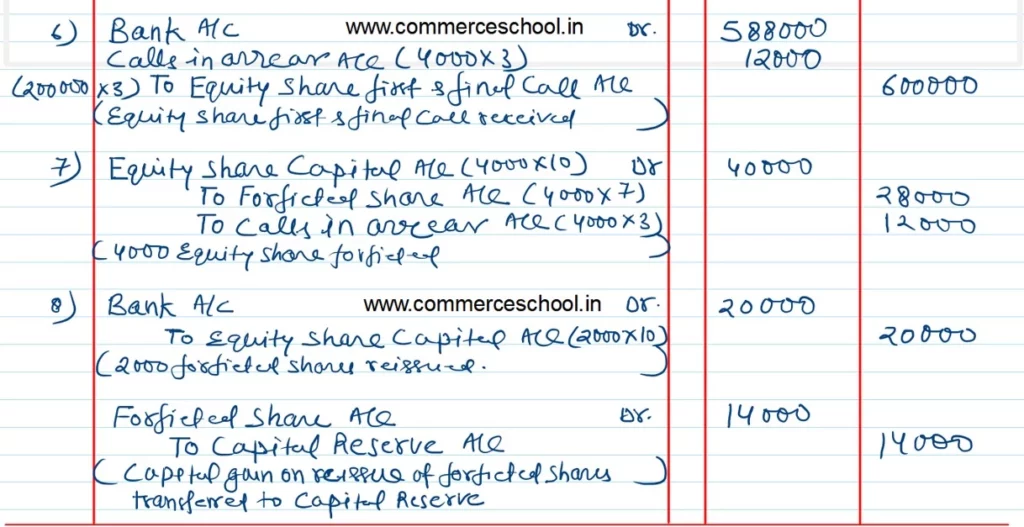 6) Bank A/C www.commerceschool.in Dr. 588000
Calls in arrear A/c (4000x3) 12000
(200000 x3) To Equity Share first & final Call A/c 600000
(Equity share first & final call received)
7) Equity Share Capital A/c (4000x10) Dr 40000
To Forficted share A/c (4000x7) 28000
To Calls in arrear A/c (4000x3) 12000
(4000 Equity share forficted)
8) Bank A/C www.commerceschool.in Dr. 20000
To Equity Share Capital A/c (2000x10) 20000
(2000 forficted shares reissued.)
Forficted Share A/c Dr. 14000
To Capital Reserve A/c 14000
(Capital gain on reissue of forficted shares)
transferred to Capital Reserve